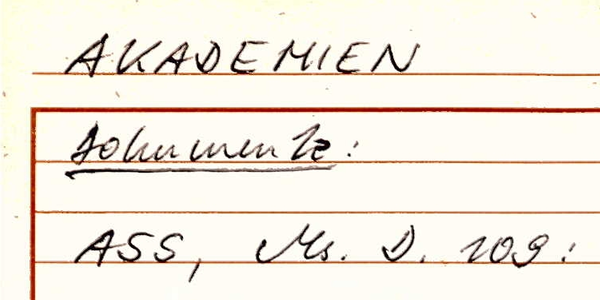 AKADEMIEN
Dokumente:
ASS, Ms. D. 109: